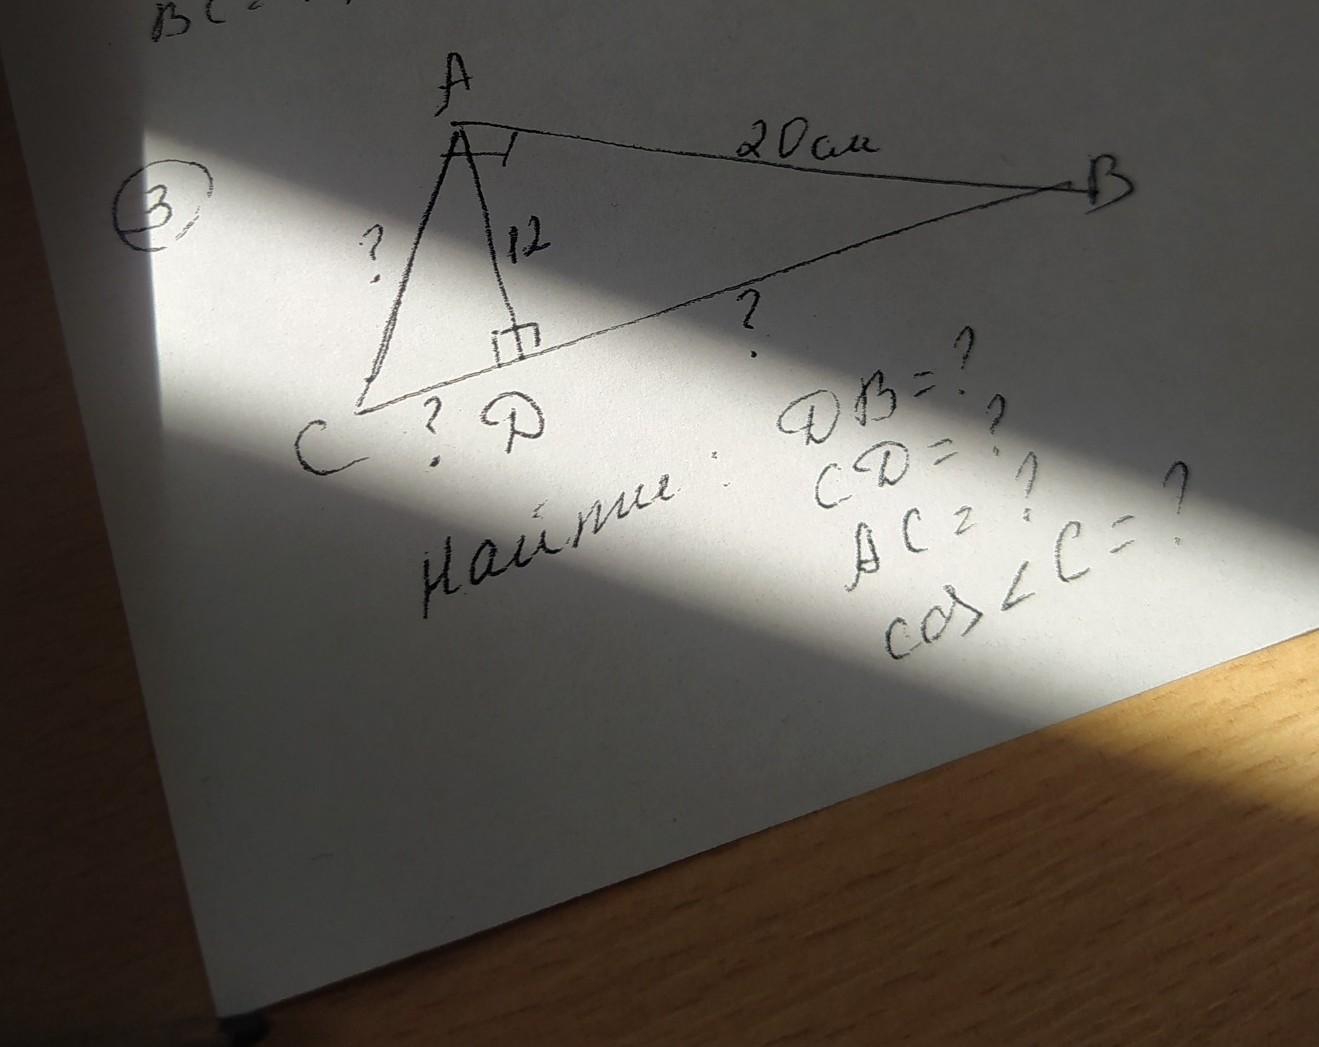 BC=
A
20см
B
3
?
12
?
C
?
D
Найти: DB=?
CD=?
AC=?
cos<C=?